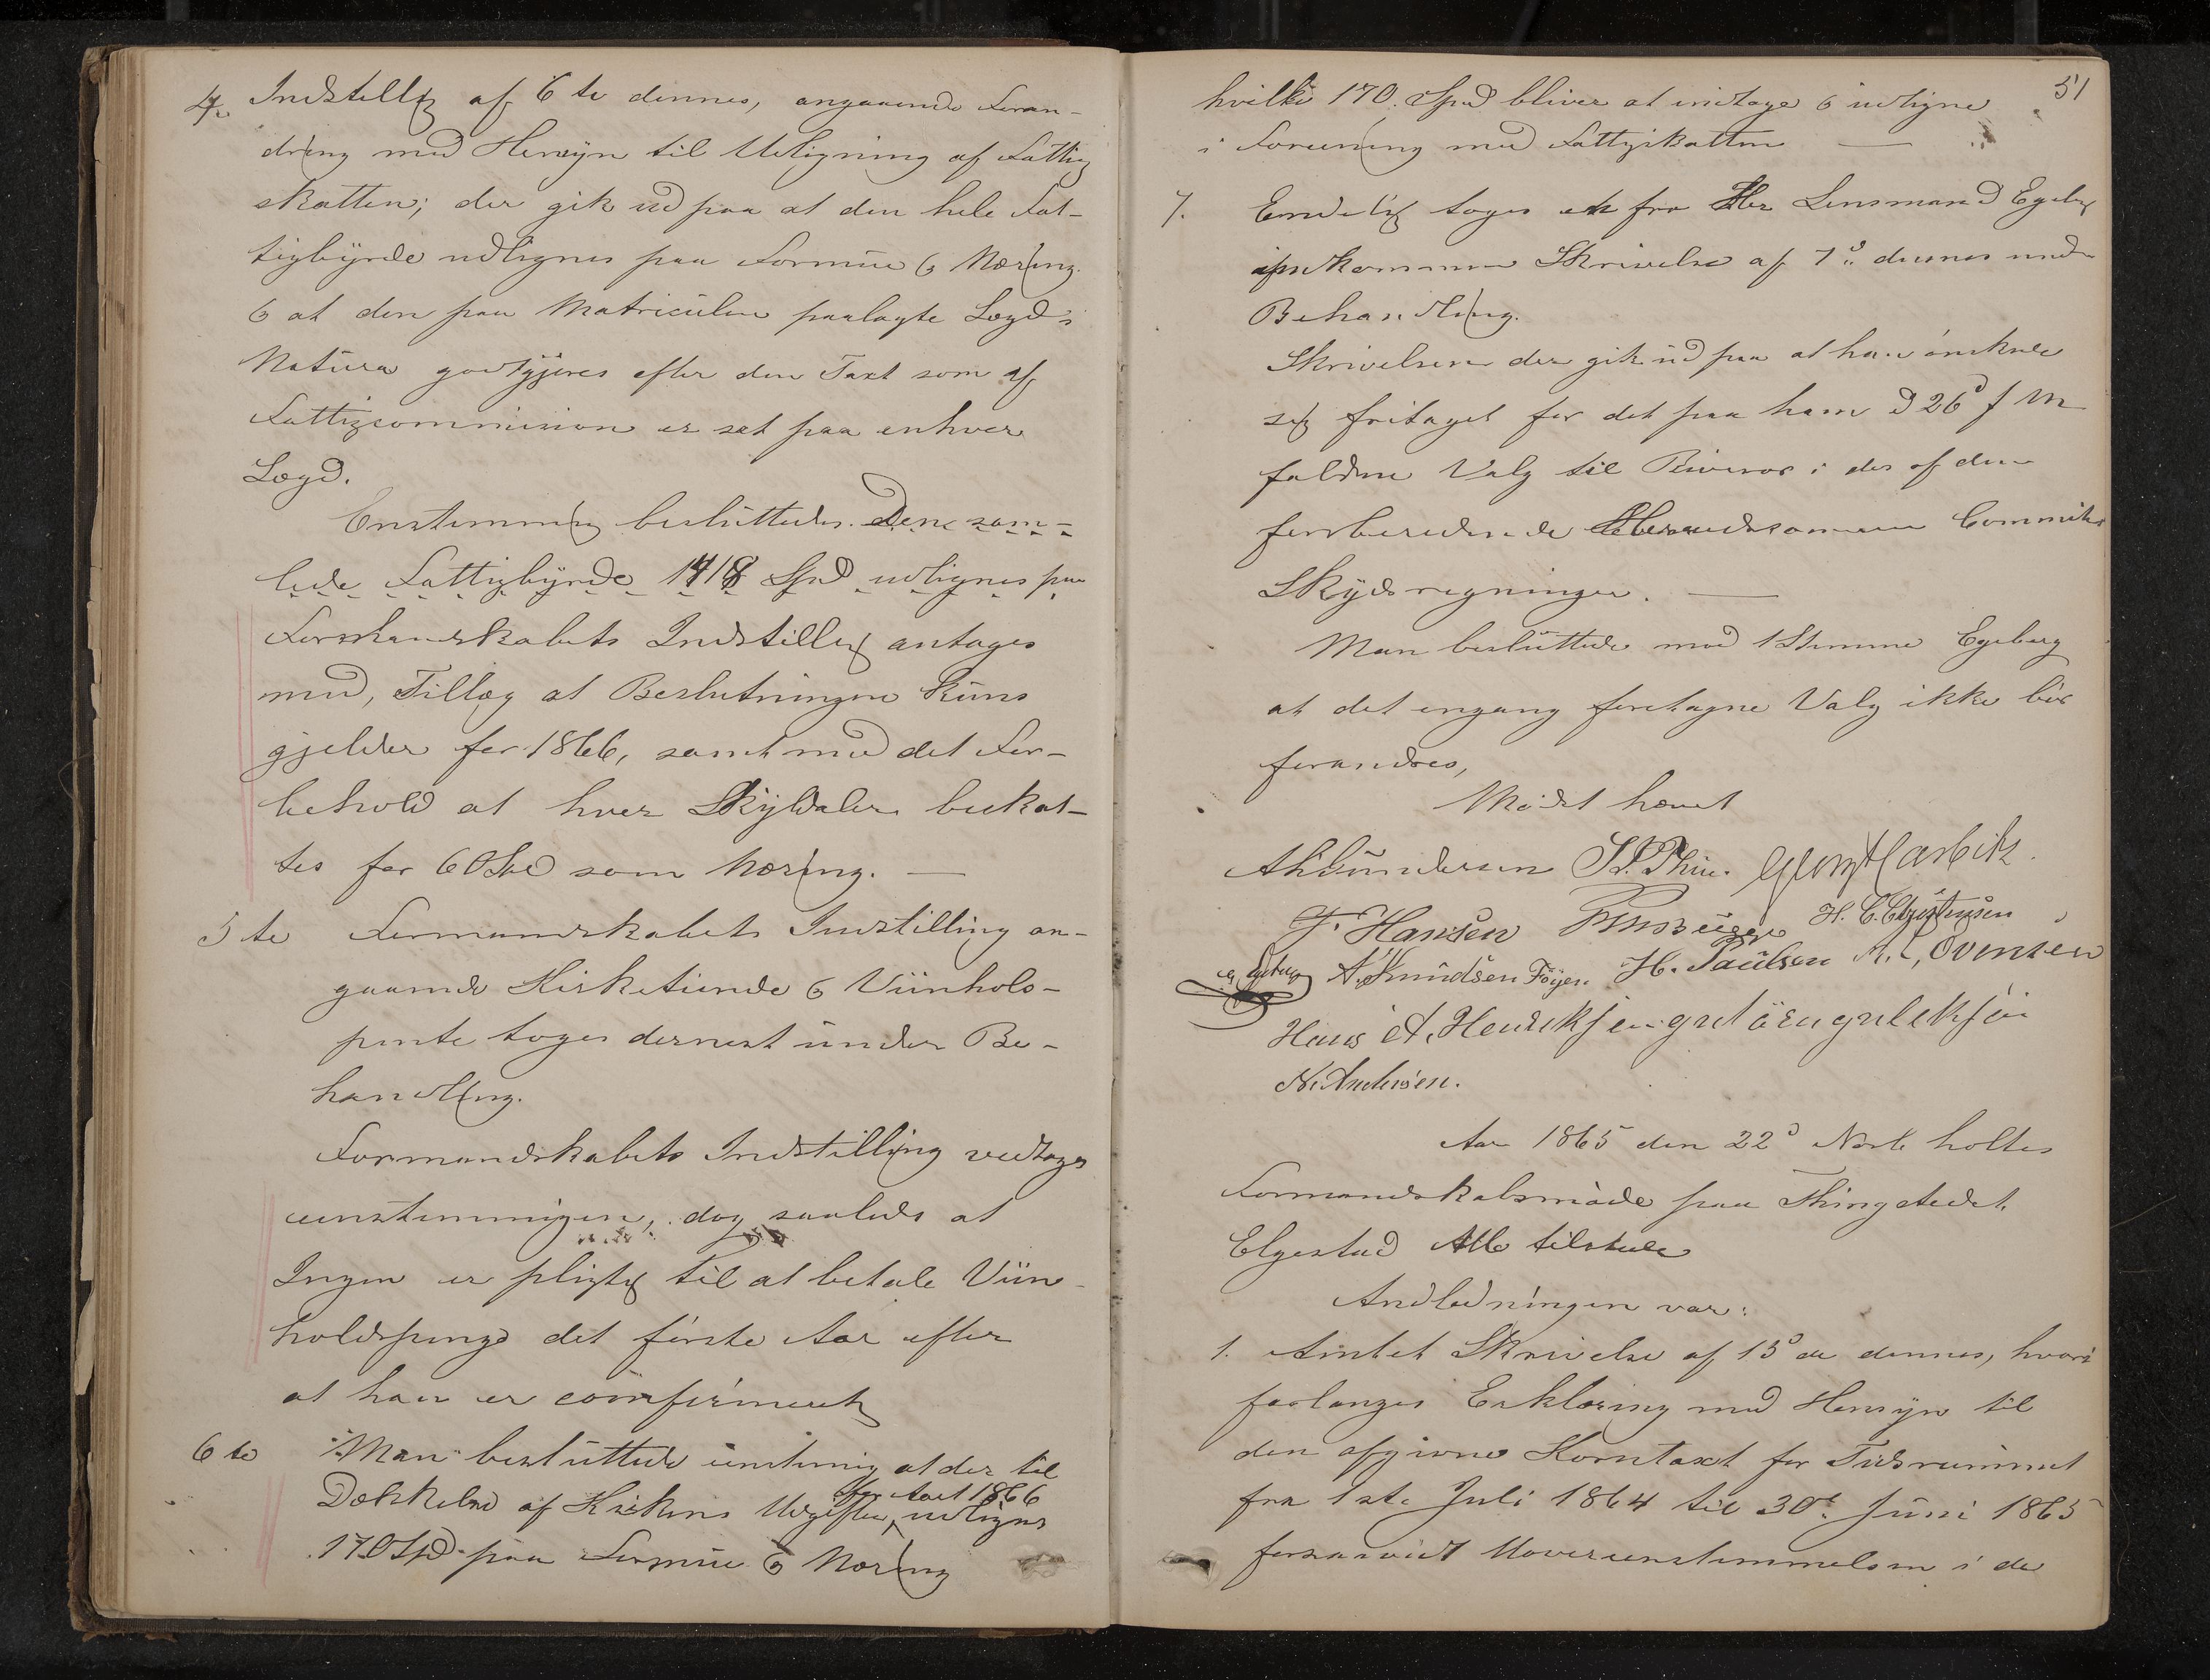 4/. Indstillg af 6te dennes, angaaende Foran-
dring med Hensyn til Udligning af Fattig
skatten; der gik ud paa at den hele Fat-
tigbyrde udlignes paa Formue & Næring.
& at den paa Matriculen paalagte Lægd i
Natura godtgjøres efter den Taxt som af
Fattigcommission er sat paa enhver
Lægd.
Enstemmig besluttedes. Den sam-
lede Fattigbyrde 1418 Spd udlignes paa
Formandskabets Indstillg antages
med, Tillæg at Beslutningen kuns
gjelder for 1866, samt med det For-
behold at hver Skyldaler beskat-
tes for 60 Spd som Næring. —
5te Formandskabets Indstilling an-
gaaende Kirketiende & Viinholds-
penge toges dernest under Be-
handling.
Formandskabets Indstilling vedtages
eenstemmigen, dog saaledes at
Ingen er pligtg til at betale Viin-
holdspenge det første Aar efter
at han er confirmeret
6te Man besluttede eenstemig at der til
for Aaret 1866
Dækkelse af Kirkens Udgifter, udlignes
170 Spd paa Formue & Næring
51
hvilke 170 Spd bliver at indtage & udligne
i Forening med Fattigskatten —
7. Endelig toges en fra Hr Lensmand Egeberg
indkommen Skrivelse af 7d dennes under
Behandling.
Skrivelsen der gik ud paa at han ønskede
sig fritaget for det paa ham d 26d f M
faldne Valg til Revisor i des af den
forberedende Commites
Skydsregninger. —
Man besluttede mod 1 Stemme Egeberg
at det engang foretagne Valg ikke bør
forandres,
Mødet hævet
A Gundersen Georg Harbitz.
F. Hansen H. C. Christensen
A. Knudsen Föyen. H. Paulsen Ovensen
Hans A. Henriksen
N. Andersen.
Aar 1865 den 22d Novb holtes
Formandskabsmøde paa Thingstedet
Elgestad Alle tilstede
Andledningen var:
1. Amtet Skrivelse af 15de dennes, hvori
forlanges Erklæring med Hensyn til
den afgivne Korntaxt for Tidsrummet
fra 1ste Juli 1864 til 30te Juni 1865
forsaavidt Uoverenstemmelsen i de